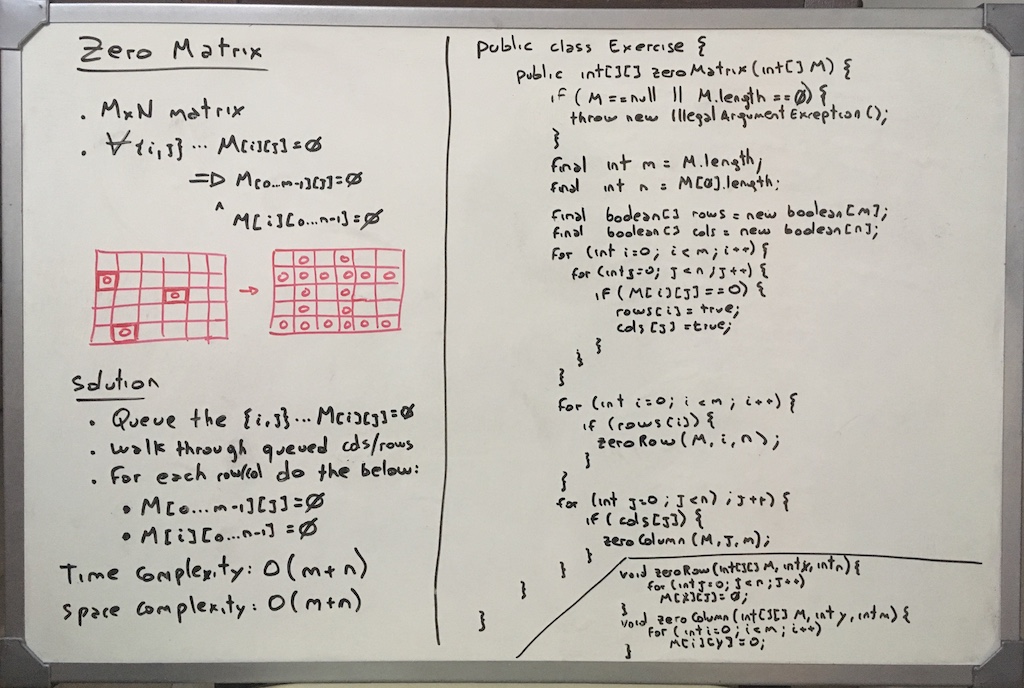 Zero Matrix
. MxN matrix
. ∀{i,j} ... M[i][j]=0
=> M[0...m-1][j]=0
^ M[i][0...n-1]=0
0
0
0
→
0 0
0 0 0 0 0 0
0 0
0 0
0 0 0 0 0 0
Solution
. Queue the {i,j}... M[i][j]=0
. Walk through queued cols/rows
. For each row/col do the below:
• M[0...m-1][j]=0
• M[i][0...n-1]=0
Time Complexity: O(m+n)
Space Complexity: O(m+n)
public class Exercise {
public int[][] zeroMatrix(int[] M) {
if (M==null || M.length==0) {
throw new IllegalArgumentException();
}
final int m = M.length;
final int n = M[0].length;
final boolean[] rows = new boolean[m];
final boolean[] cols = new boolean[n];
for (int i=0; i<m; i++) {
for (int j=0; j<n; j++) {
if (M[i][j]==0) {
rows[i] = true;
cols[j] = true;
}
}
}
for (int i=0; i<m; i++) {
if (rows(i)) {
zeroRow(M, i, n);
}
}
for (int j=0; j<n) ; j++) {
if (cols[j]) {
zeroColumn(M, j, m);
}
}
}
}
void zeroRow(int[][] M, int x, int n) {
for (int j=0; j<n; j++)
M[x][j]=0;
}
void zeroColumn(int[][] M, int y, int m) {
for (int i=0; i<m; i++)
M[i][y]=0;
}